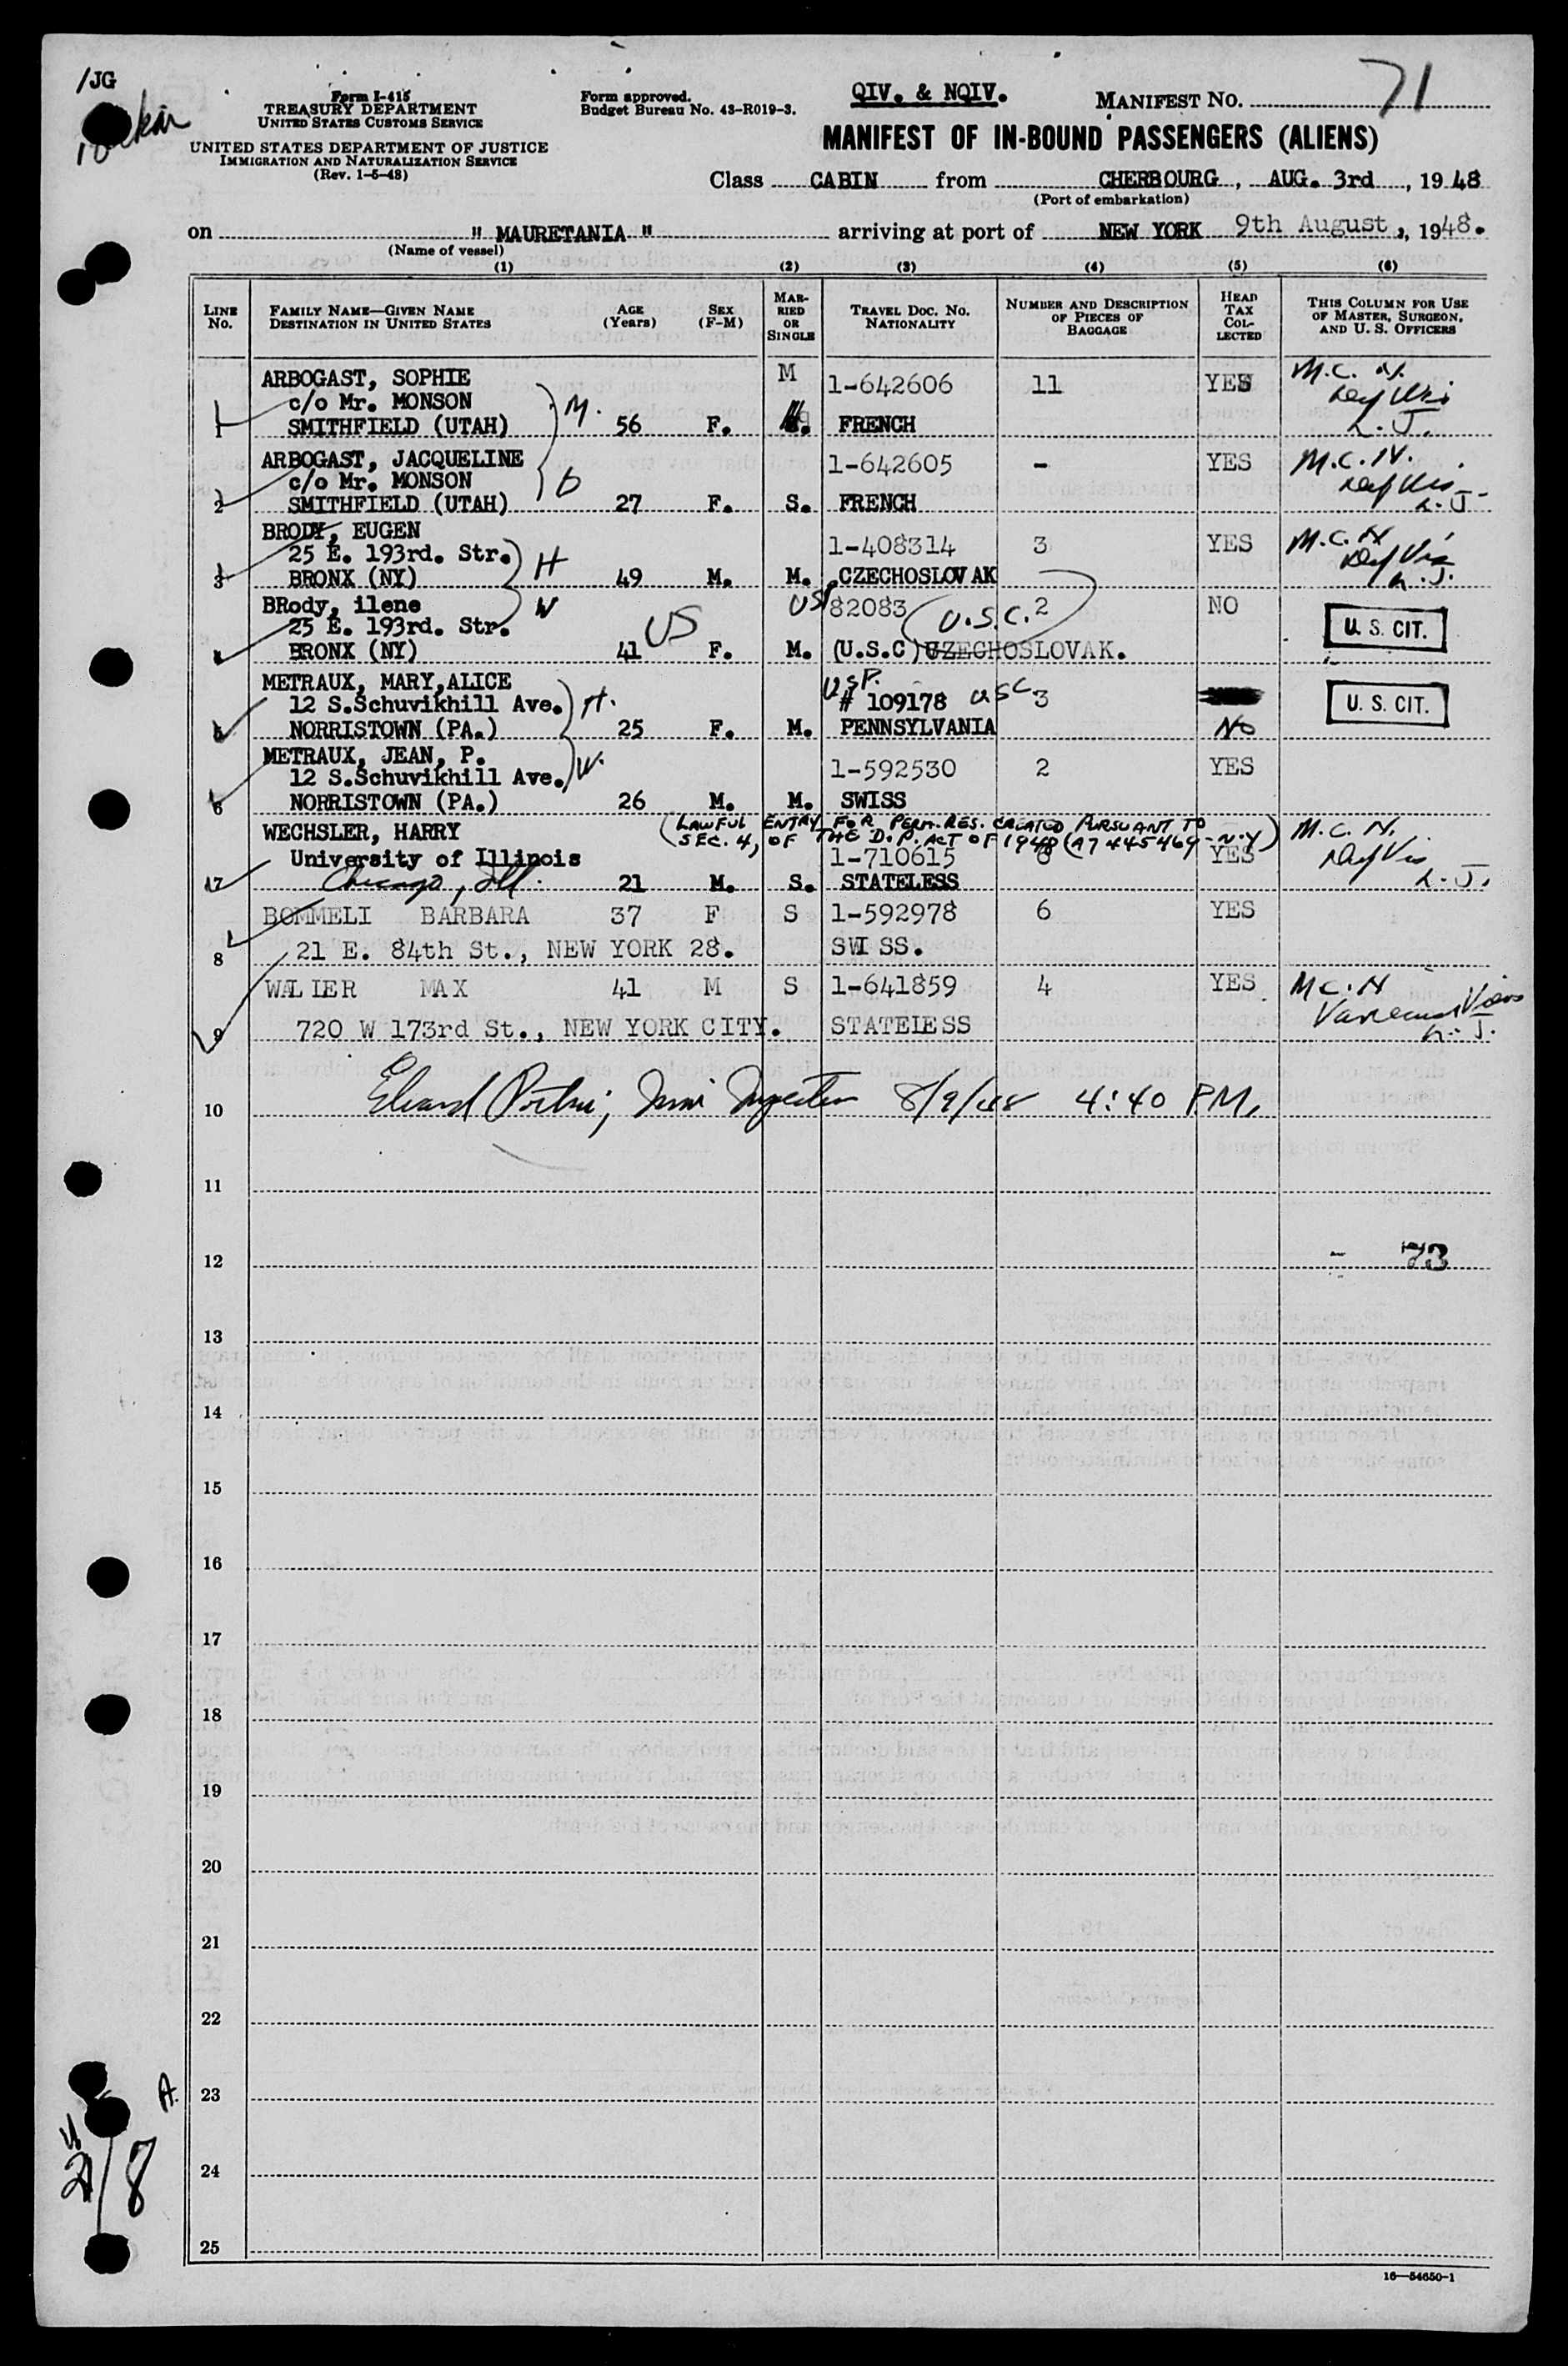 /JG
Form I-415
TREASURY DEPARTMENT
UNITED STATES CUSTOMS SERVICE
UNITED STATES DEPARTMENT OF JUSTICE
IMMIGRATION AND NATURALIZATION SERVICE
(Rev. 1-5-48)
Form approved.
Budget Bureau No. 43-R019-3.
QIV. & NQIV.
MANIFEST No. 71
MANIFEST OF IN-BOUND PASSENGERS (ALIENS)
Class CABIN from CHERBOURG, AUG. 3rd, 1948
(Port of embarkation)
on " MAURETANIA " arriving at port of NEW YORK 9th August, 1948.
(Name of vessel)
(1) (2) (3) (4) (5) (6)
LINE No.
FAMILY NAME—GIVEN NAME
DESTINATION IN UNITED STATES
AGE (Years)
SEX (F-M)
MARRIED OR SINGLE
TRAVEL DOC. NO.
NATIONALITY
NUMBER AND DESCRIPTION OF PIECES OF BAGGAGE
HEAD TAX COLLECTED
THIS COLUMN FOR USE OF MASTER, SURGEON, AND U. S. OFFICERS
ARBOGAST, SOPHIE M 1-642606 11 YES M.C.N.
c/o Mr. MONSON M.
1 SMITHFIELD (UTAH) 56 F. FRENCH L.J.
ARBOGAST, JACQUELINE 1-642605 - YES M.C.N.
c/o Mr. MONSON D
2 SMITHFIELD (UTAH) 27 F. S. FRENCH L.J.
BRODY, EUGEN 1-408314 3 YES M.C.N
25 E. 193rd. Str. H
3 BRONX (NY) 49 M. M. CZECHOSLOVAK L.J.
BRody, ilene W USP 82083 U.S.C. 2 NO U. S. CIT.
25 E. 193rd. Str. US
BRONX (NY) 41 F. M. (U.S.C) CZECHOSLOVAK.
METRAUX, MARY,ALICE USP.
12 S.Schuvikhill Ave. H. # 109178 USC 3 U. S. CIT.
NORRISTOWN (PA.) 25 F. M. PENNSYLVANIA No
METRAUX, JEAN, P. 1-592530 2 YES
12 S.Schuvikhill Ave. W.
6 NORRISTOWN (PA.) 26 M. M. SWISS
(LAWFUL ENTRY FOR PERM. RES. CREATED PURSUANT TO
SEC. 4, OF THE D.P. ACT OF 1948 (A7445469 - N.Y)
WECHSLER, HARRY M.C.N.
University of Illinois 1-710615 8 YES
7 Chicago, Ill. 21 M. S. STATELESS L.J.
BOMMELI BARBARA 37 F S 1-592978 6 YES
8 21 E. 84th St., NEW YORK 28. SWISS.
WALIER MAX 41 M S 1-641859 4 YES M.C.N
9 720 W 173rd St., NEW YORK CITY. STATELESS L.J.
10 8/9/48 4:40 P.M.
11
12 73
13
14
15
16
17
18
19
20
21
22
A. 23
24
8
25
16—54650-1